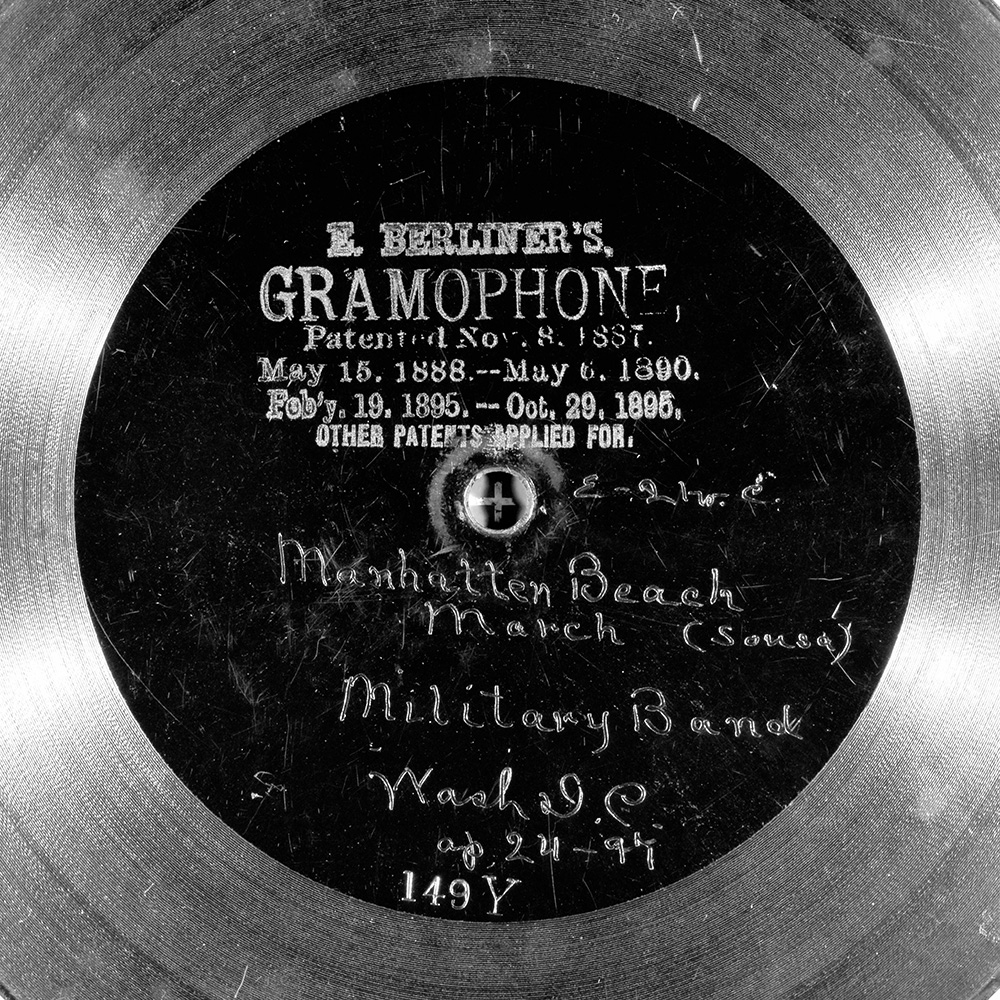 E. BERLINER'S,
GRAMOPHONE,
Patented Nov. 8. 1887.
May 15. 1888.--May 6. 1890.
Feb'y. 19. 1895. — Oct. 29. 1895.
OTHER PATENTS APPLIED FOR.
Manhatten Beach
March (Sousa)
Military Band
Wash D.C
ap. 24 - 97
149 Y